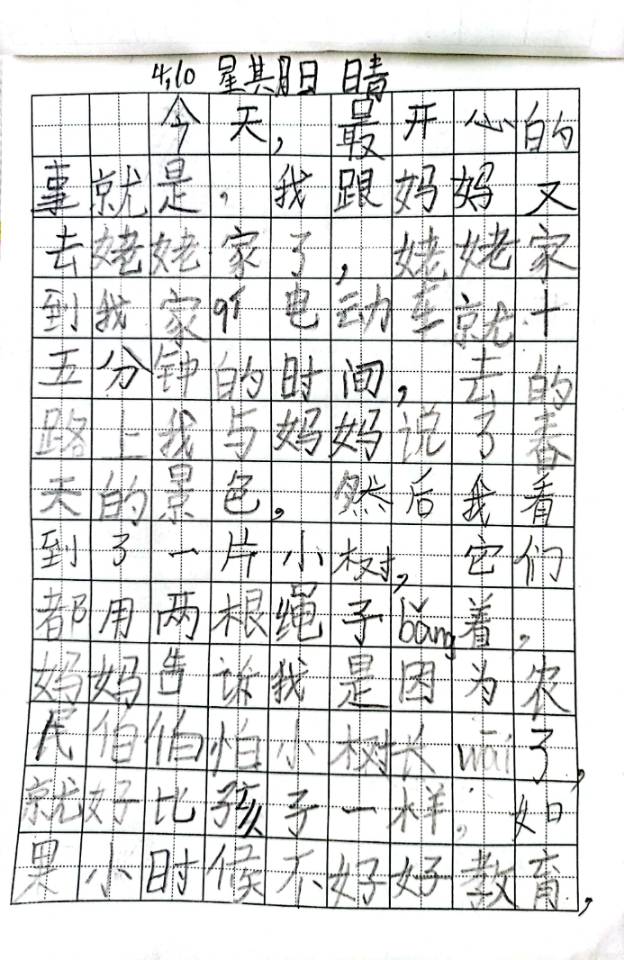 4,10 星期日 晴
今天，最开心的
事就是，我跟妈妈又
去姥姥家了，姥姥家
到我家电动车就十
五分钟的时间，去的
路上我与妈妈说了春
天的景色，然后我看
到了一片小树，它们
都用两根绳子bǎng着，
妈妈告诉我是因为农
民伯伯怕小树长wāi了，
就好比孩子一样。如
果小时候不好好教育，